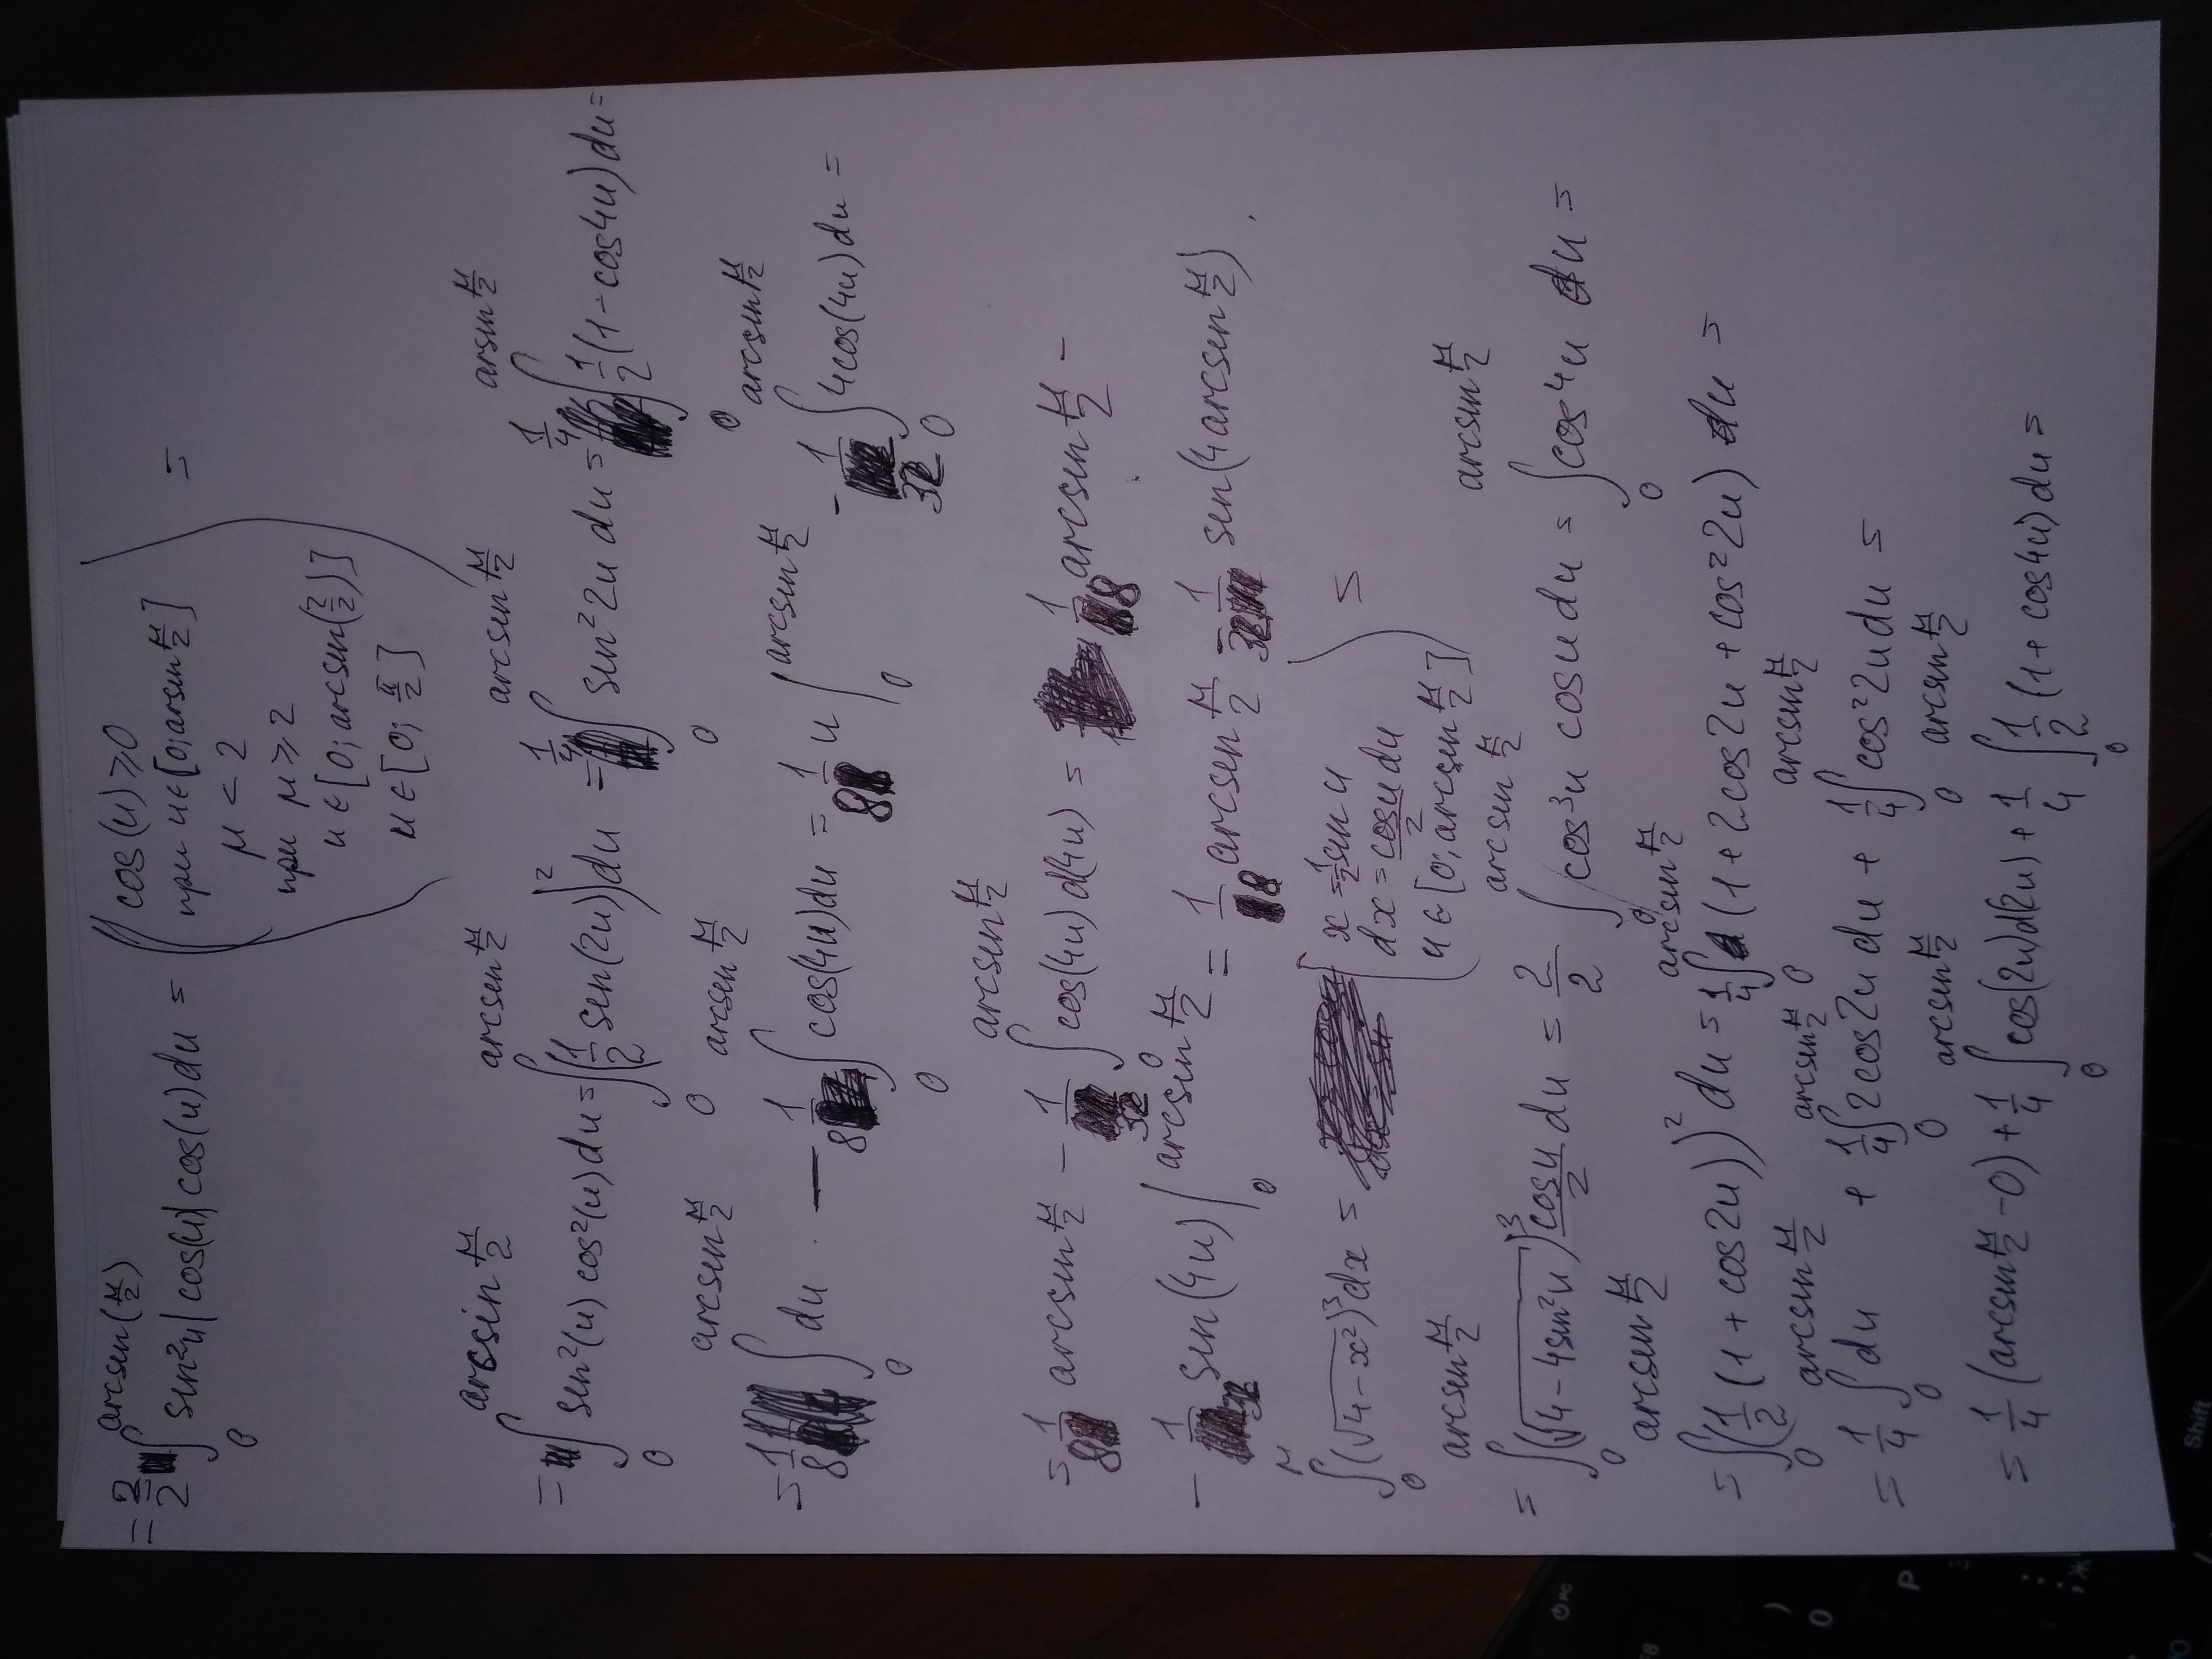 = 2/2 ∫₀^{arcsin(μ/2)} sin²u |cos(u)| cos(u) du = ( cos(u) ⩾ 0
при u ∈ [0; arsin μ/2]
μ < 2
при μ ⩾ 2
u ∈ [0; arcsin(2/2)]
u ∈ [0; π/2] ) =
= ∫₀^{arcsin μ/2} sin²(u) cos²(u) du = ∫₀^{arcsin μ/2} (1/2 sin(2u))² du = 1/4 ∫₀^{arcsin μ/2} sin²2u du = 1/4 ∫₀^{arsin μ/2} 1/2 (1 − cos4u) du =
= 1/8 ∫₀^{arcsin μ/2} du − 1/8 ∫₀^{arcsin μ/2} cos(4u) du = 1/8 u |₀^{arcsin μ/2} − 1/32 ∫₀^{arcsin μ/2} 4cos(4u) du =
= 1/8 arcsin μ/2 − 1/32 ∫₀^{arcsin μ/2} cos(4u) d(4u) = 1/8 arcsin μ/2 −
− 1/32 sin(4u) |₀^{arcsin μ/2} = 1/8 arcsin μ/2 − 1/32 sin(4 arcsin μ/2).
∫₀^μ (√4 − x²)³ dx = ( x = 1/2 sin u
dx = cosu/2 du
u ∈ [0; arcsin μ/2] ) =
= ∫₀^{arcsin μ/2} (√4 − 4sin²u)³ cosu/2 du = 2/2 ∫₀^{arcsin μ/2} cos³u cosu du = ∫₀^{arcsin μ/2} cos⁴u du =
= ∫₀^{arcsin μ/2} (1/2 (1 + cos2u))² du = 1/4 ∫₀^{arcsin μ/2} (1 + 2cos2u + cos²2u) du =
= 1/4 ∫₀^{arcsin μ/2} du + 1/4 ∫₀^{arcsin μ/2} 2cos2u du + 1/4 ∫₀^{arcsin μ/2} cos²2u du =
= 1/4 (arcsin μ/2 − 0) + 1/4 ∫₀^{arcsin μ/2} cos(2u) d(2u) + 1/4 ∫₀^{arcsin μ/2} 1/2 (1 + cos4u) du =
Shift
P